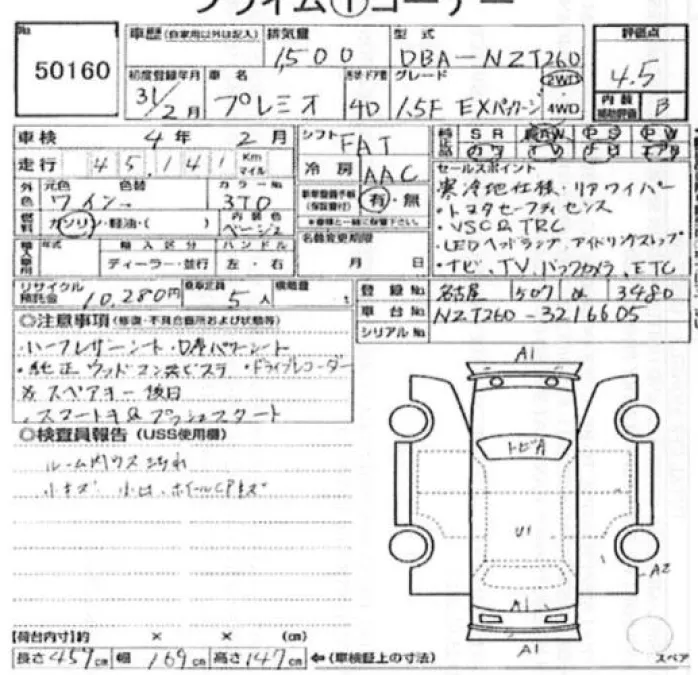 プライム①コーナー
No. 50160
車歴(自家用以外は記入) 排気量 1,500 型式 DBA-NZT260 評価点 4.5
初度登録年月 31/2月 車名 プレミオ 形状・ドア数 4D グレード 1.5F EXパッケージ 2WD 4WD 内装補助評価 B
車検 4年2月 シフト FAT 純正品 SR AW PS PW
カワ TV ナビ エアB
走行 45,141 Km マイル 冷房 AAC セールスポイント
外色 元色 ワイン 色替 カラーNo. 3T0 新車整備手帳(保証書付) 有・無 寒冷地仕様・リアワイパー
※車検と一緒に保管下さい。 ・トヨタセーフティセンス
燃料 ガソリン・軽油・( ) 内装色 ベージュ ・VSC&TRC
輸入車用 年式 輸入区分 ハンドル 名義変更期限 ・LEDヘッドランプ、アイドリングストップ
ディーラー・並行 左・右 月 日 ・ナビ、TV、バックカメラ、ETC
リサイクル預託金 10,280円 乗車定員 5人 積載量 t 登録No. 名古屋 507 3480
車台No. NZT260-3216605
シリアルNo.
◎注意事項(修復・不具合箇所および状態等)
・ハーフレザーシート・D席パワーシート
・純正ウッドコンビステ ・ドライブレコーダー
※スペアキー後日
・スマートキー&プッシュスタート
◎検査員報告(USS使用欄)
ルーム内
小キズ 小凹、ホイールCPキズ
A1
トビA
U1
A2
A1
A1
【荷台内寸】約 × × (cm)
長さ459cm 幅169cm 高さ147cm ⇐(車検証上の寸法) スペア